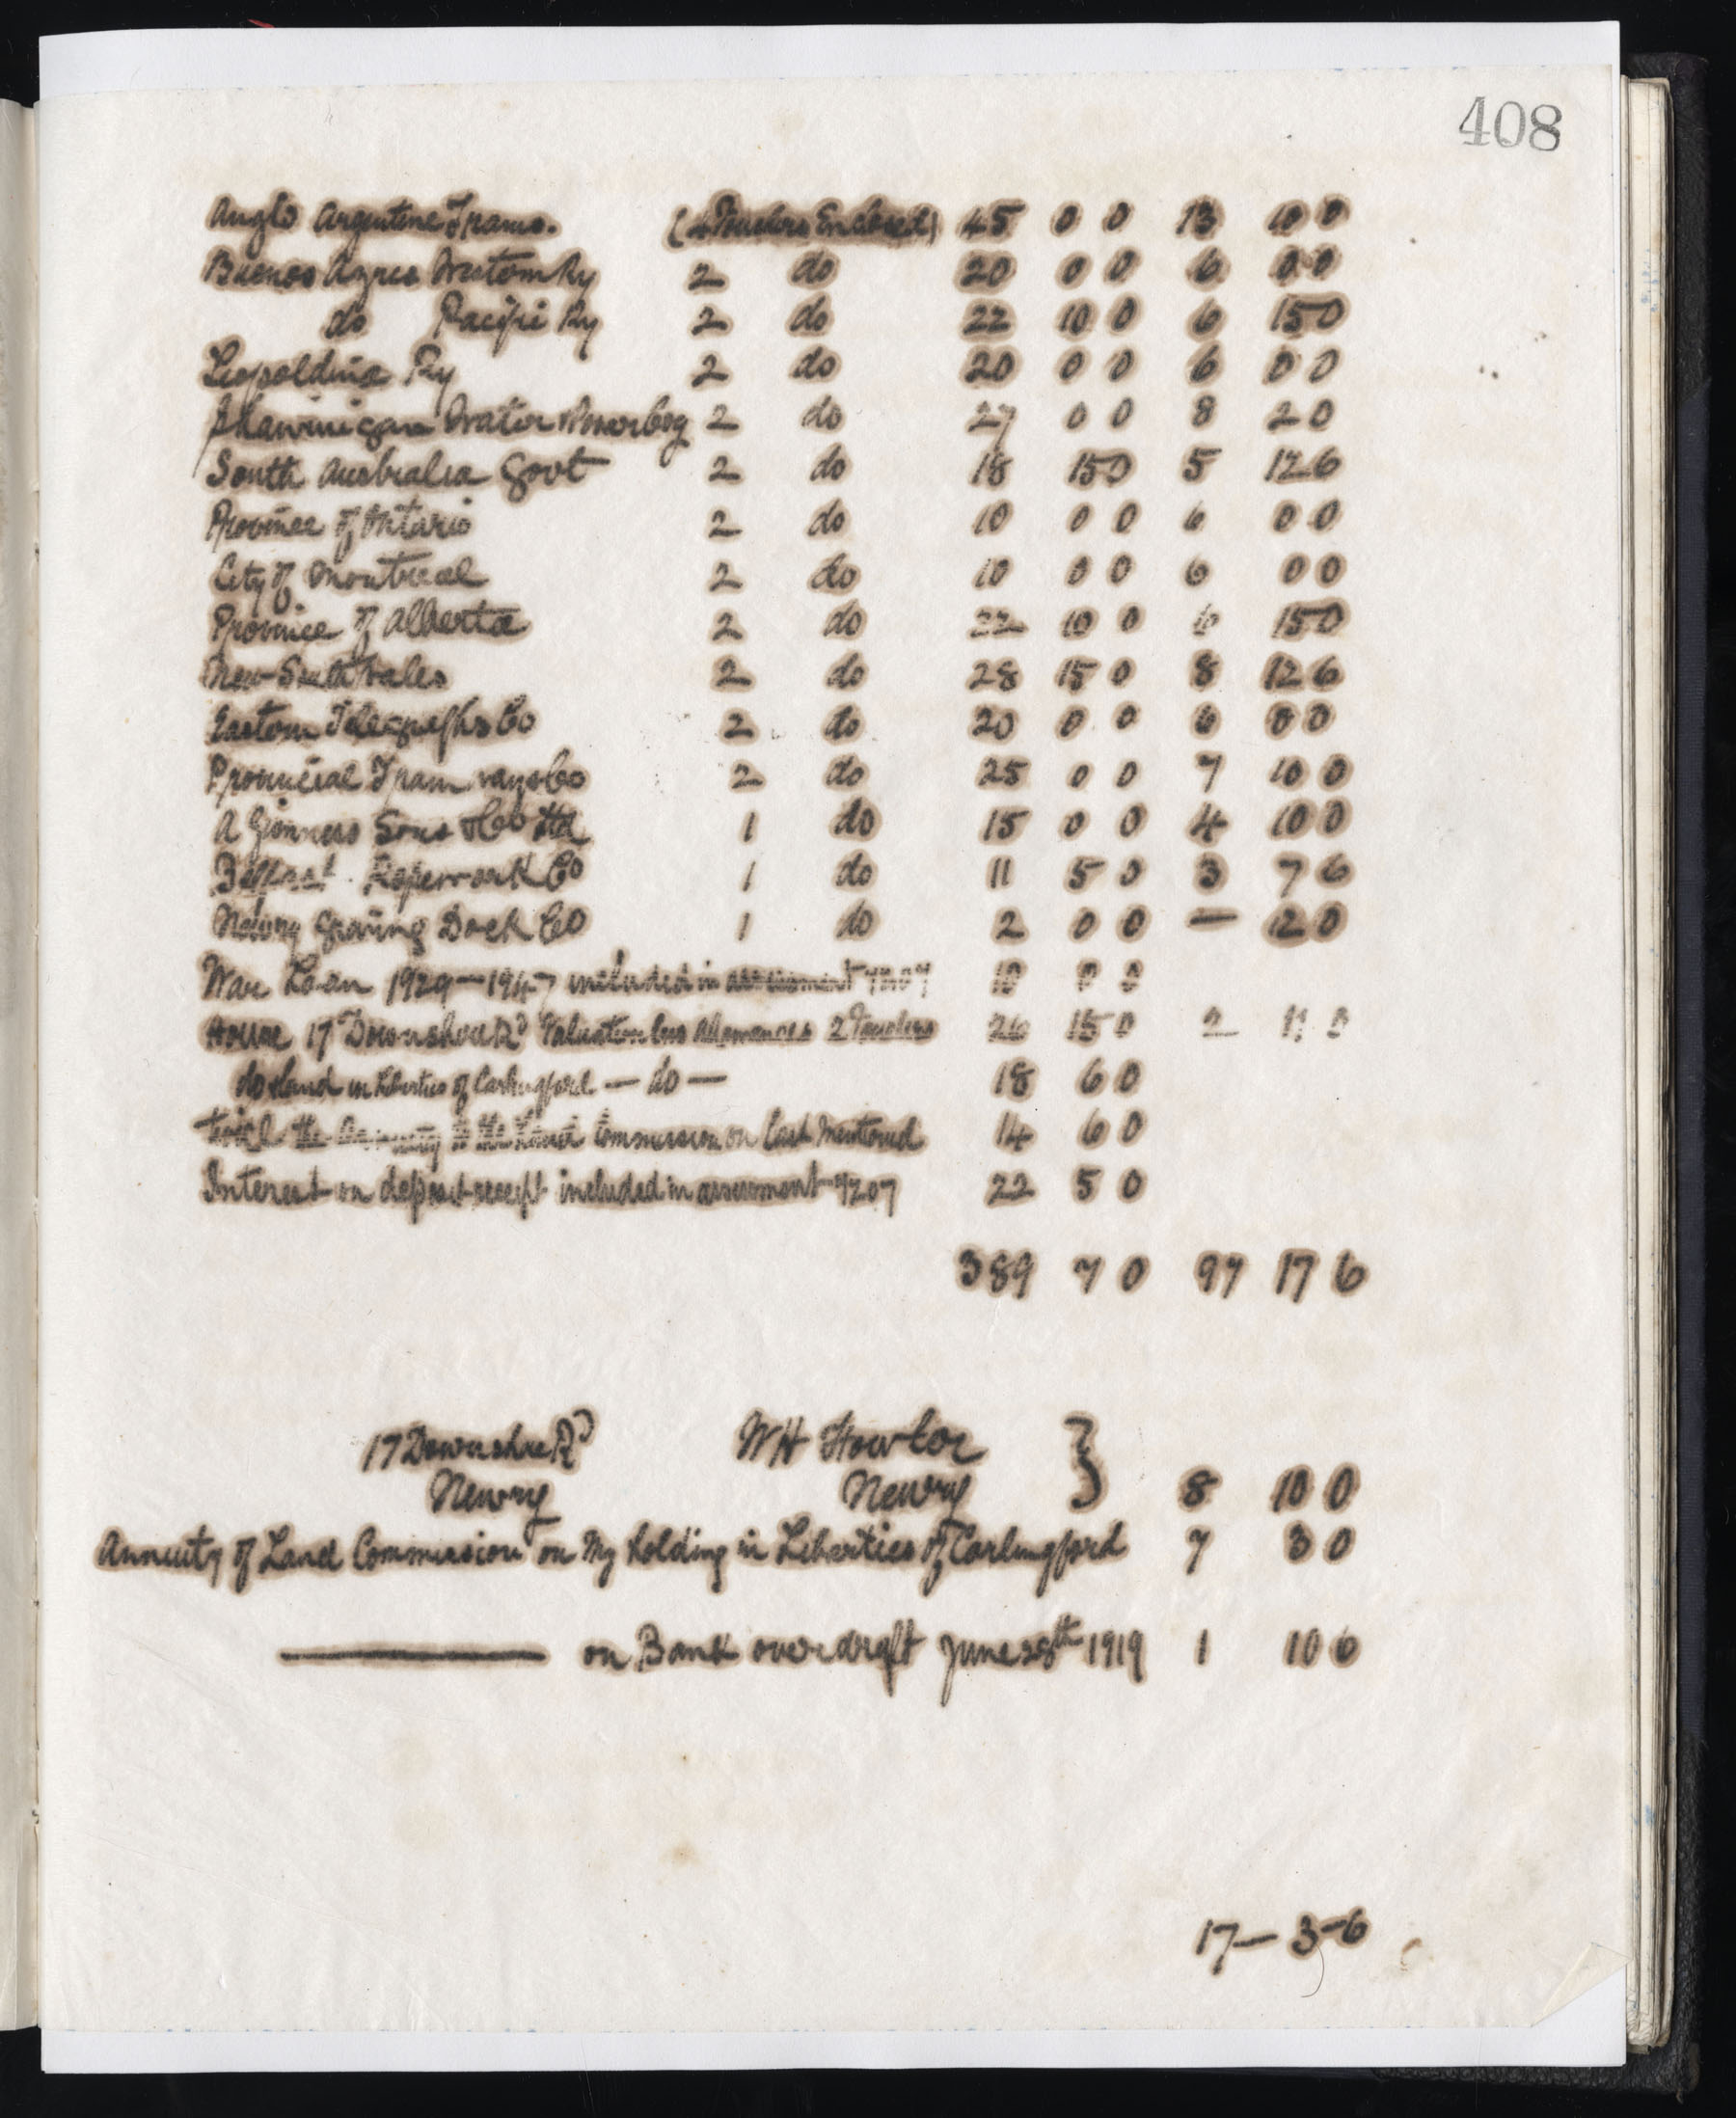 408
Anglo Argentine Trams. (4 Vouchers Enclosed) 45 0 0 13 10 0
Buenos Ayres Western Ry 2 do 20 0 0 6 0 0
do Pacific Ry 2 do 22 10 0 6 15 0
Leopoldina Ry 2 do 20 0 0 6 0 0
Shawinigan Water & Power Coy 2 do 27 0 0 8 2 0
South Australia Govt 2 do 18 15 0 5 12 6
Province of Ontario 2 do 10 0 0 6 0 0
City of Montreal 2 do 10 0 0 6 0 0
Province of Alberta 2 do 22 10 0 6 15 0
New South Wales 2 do 28 15 0 8 12 6
Eastern Telegraphs Co 2 do 20 0 0 6 0 0
Provincial Tramways Co 2 do 25 0 0 7 10 0
A Guinness Sons & Co Ltd 1 do 15 0 0 4 10 0
Belfast Ropework Co 1 do 11 5 0 3 7 6
Newry Graving Dock Co 1 do 2 0 0 — 12 0
War Loan 1929–1947 included in assessment 9207 10 0 0
House 17 Downshire Rd Valuation less Allowances 2 Vouchers 26 15 0 2 11 0
do Land in Liberties of Carlingford — do — 18 6 0
the Annuity to the Land Commission on last mentioned 14 6 0
Interest on deposit receipt included in assessment 9207 22 5 0
389 7 0 97 17 6
17 Downshire Rd WH
Newry Newry } 8 10 0
Annuity of Land Commission on my holding in Liberties of Carlingford 7 3 0
——— on Bank overdraft June 28th 1919 1 10 6
17–3–6